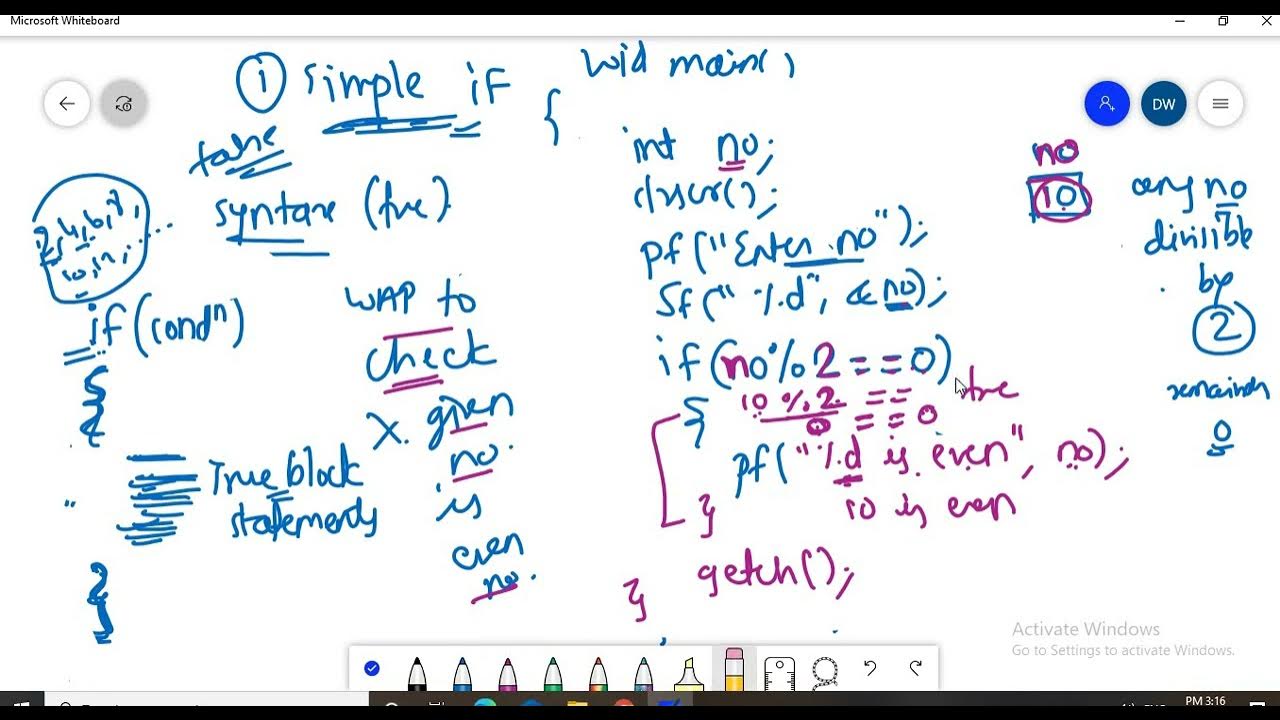 Microsoft Whiteboard
① Simple if
false
syntax (true)
2, 4, 6, 8,
10, 12, .....
if (condn)
{
True block
statements
}
WAP to
check
x. given
no.
is
even
no.
void main()
{
int no;
clrscr();
pf("Enter no");
Sf("%d", &no);
if (no%2 == 0)
10 % 2 ==
true
{
0 == 0
pf("%d is even", no);
10 is even
}
getch();
}
no
10
any no
divisible
by
2
remainder
0
DW
Activate Windows
Go to Settings to activate Windows.
PM 3:16